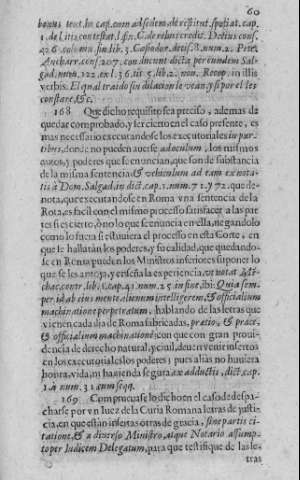 60
bonus text. in cap. cum ad sedem, de restitut. spoliat. cap.
1. de Litis contestat. l. fin. C. de rebus credit. Decius cons.
426. column. fin. lib. 3. Casiodor. decis. 8. num. 2. Petr.
Ancharr. cons. 207. con ducunt dicta per eundem Sal-
gad. num. 122. ex l. 36. tit. 5. lib. 2. nov. Recop. in illis
verbis: El qual traido sin dilacion le vean, y si por el les
constare, &c.
168 Que dicho requisito sea preciso, ademàs de
quedar comprobado, y ser cierto en el caso presente, es
mas necessario executandose los executoriales in par-
tibus, donde no pueden auerse ad oculum, los mismos
autos, y poderes que se enuncian, que son de substancia
de la misma sentencia, & vehiculum ad eam ex nota-
tis à Dom. Salgad. in dict. cap. 1. num. 71. y 72. que de-
nota, que executandose en Roma vna sentencia de la
Rota, es facil con el mismo processo satisfacer a las par
tes si es cierto, ò no lo que se enuncia en ella, negandolo
como lo fuera si estuuiera el processo en esta Corte, en
que se hallatàn los poderes, y su calidad, que quedando-
se en Roma pueden los Ministros inferiores suponer lo
que se les antoja, y enseña la experiencia, ut notat
chac. contr. lib. 1. cap. 41. num. 25. in fine, ibi: Quia sem-
per id ab eius mente alienum intelligerem, & officialium
machinatione perpetratum, hablando de las letras que
vienen cada dia de Roma fabricadas, & officialium machinatione; con que con gran proui-
dencia de derecho natural, y ciuil, deue reuenir inserto
en los executoriales los poderes; pues alias no huuiera
honra, vida, ni hazienda segura, ex adductis, dict. cap.
1. à num. 31. cum seqq.
169 Compruevase lo dicho en el caso de despa-
charse por vn Iuez de la Curia Romana letras de justi-
cia, en que estàn insertas otras de gracia, sine partis ci-
tatione, & a diverso Ministro, atque Notario assump-
to per Iudicem Delegatum, para que testifique de las le-
tras